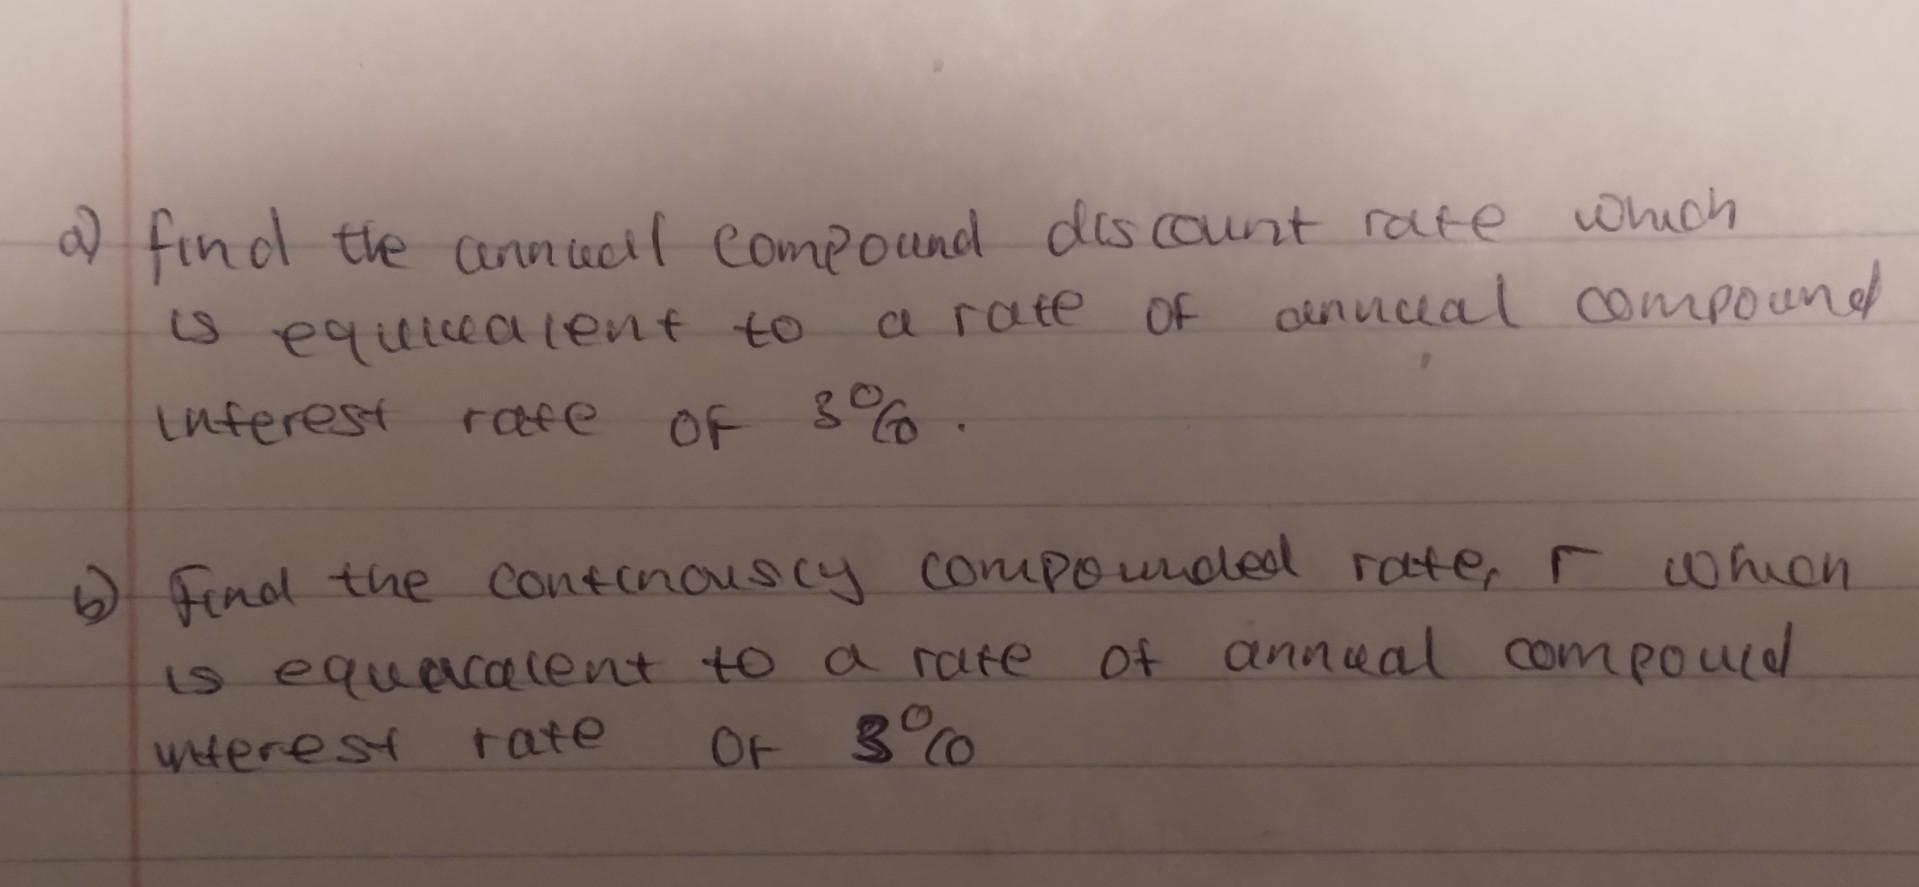 a) find the annual compound discount rate which
is equivalent to a rate of annual compound
interest rate of 3%.
b) Find the continously compounded rate, r which
is equivalent to a rate of annual compoud
interest rate of 3%